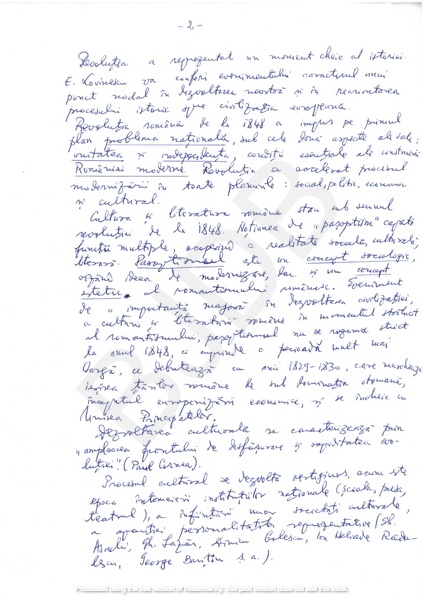 - 2 -
Revoluția a reprezentat un moment cheie al istoriei.
E. Lovinescu va conferi evenimentului caracterul unui
punct nodal în dezvoltarea noastră și în reorientarea
procesului istoric spre civilizația europeană.
Revoluția română de la 1848 a impus pe primul
plan problema națională, sub cele două aspecte ale sale:
unitatea și independența, condiții esențiale ale construirii
României moderne. Revoluția a accelerat procesul
modernizării în toate planurile: social, politic, economic
și cultural.
Cultura și literatura română stau sub semnul
revoluției de la 1848. Noțiunea de "pașoptism" capătă
funcții multiple, acoperind o realitate socială, culturală,
literară. Pașoptismul este un concept sociologic,
vizând ideea de modernizare, dar și un concept
estetic al romantismului românesc. Eveniment
de o importanță majoră în dezvoltarea civilizației,
a culturii și literaturii române în momentul
al romantismului, pașoptismul nu se rezumă strict
la anul 1848, ci cuprinde o perioadă mult mai
largă, ce debutează cu anii 1829-1830, care marchează
ieșirea țărilor române de sub dominația otomană,
începutul europenizării economice, și se încheie cu
Unirea Principatelor.
Dezvoltarea culturală se caracterizează prin
"amploarea frontului de desfășurare și rapiditatea evo-
luției" (Paul Cornea).
Procesul cultural se dezvoltă vertiginos, acum este
epoca întemeierii instituțiilor naționale (școala, presa,
teatrul), a înființării unor societăți culturale,
a apariției personalităților reprezentative (Gh.
Asachi, Gh. Lazăr, Dinicu Golescu, Ion Heliade Rădu-
lescu, George Barițiu ș.a.).